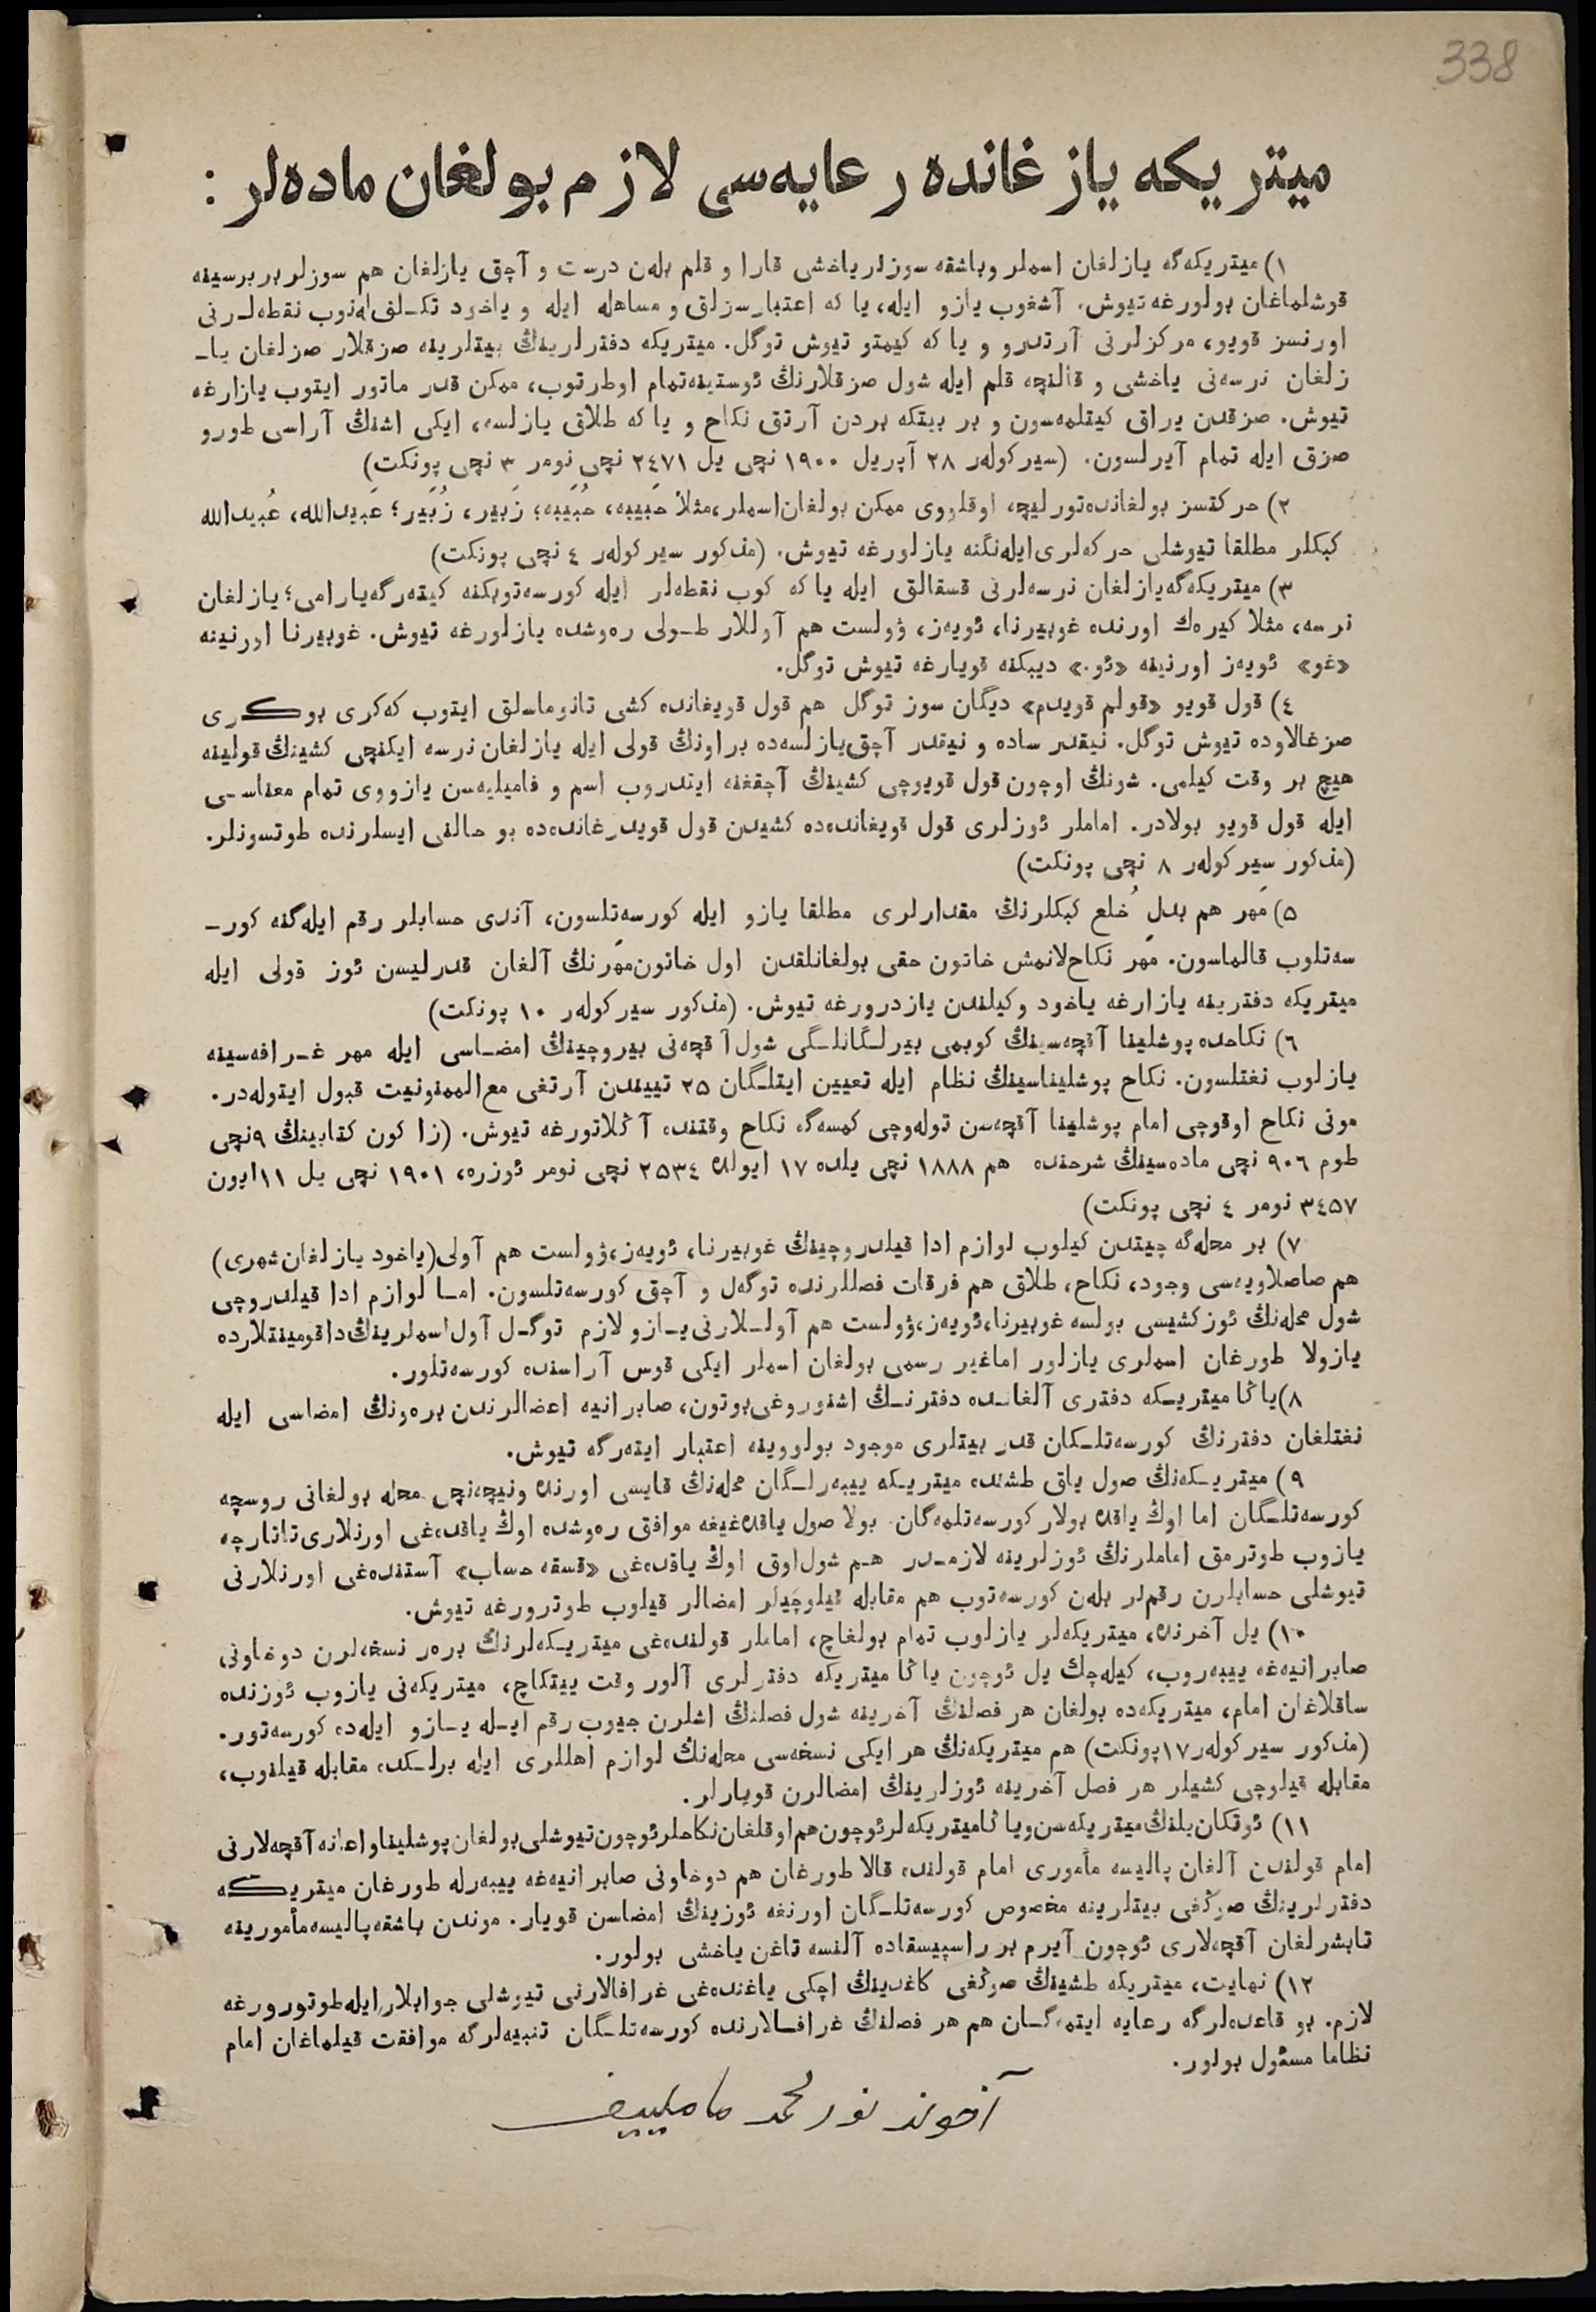 338
ميتريكه يازغانده رعايه‌سى لازم بولغان ماده‌لر :
١) ميتريكه‌گه يازلغان اسملر وباشقه سوزلر ياخشى قارا و قلم بلەن درست و آچق يازلغان هم سوزلر بر برسينه
قوشلماغان بولورغه تيوش. آشغوب يازو ايله، يا كه اعتبارسزلق و مساهله ايله و ياخود تكـلف‌له‌نوب نقطه‌لـرنى
اورنسز قويو، مركزلرنى آرتدرو و يا كه كيمتو تيوش توگل. ميتريكه دفترلرينڭ بيتلرينه صزقلار صزلغان يا-
زلغان نرسه‌نى ياخشى و قالنچه قلم ايله شول صزقلارنڭ ئوستينه تمام اوطرتوب، ممكن قدر ماتور ايتوب يازارغه
تيوش. صزقدن يراق كيتلمه‌سون و بر بيتكه بردن آرتق نكاح و يا كه طلاق يازلسه، ايكى اشنڭ آراسى طورو
صزق ايله تمام آيرلسون. (سيركولەر ٢٨ آپريل ١٩٠٠ نچى يل ٢٤٧١ نچى نومر ٣ نچى پونكت)
٢) حركتسز بولغانده تورليچه اوقلووى ممكن بولغان اسملر، مثلا حَبيبه، حُبَيبه؛ زَبير، زُبَير؛ عَبيدالله، عُبيدالله
كبكلر مطلقا تيوشلى حركه‌لرى ايله‌نگنه يازلورغه تيوش. (مذكور سيركولەر ٤ نچى پونكت)
٣) ميتريكه‌گه يازلغان نرسه‌لرنى قسقالق ايله يا كه كوب نقطه‌لر ايله كورسه‌توبكنه كيته‌رگه يارامى؛ يازلغان
نرسه، مثلا كيرەك اورنده غوبيرنا، ئويەز، ۋولست هم آوللار طـولى رەوشده يازلورغه تيوش. غوبيرنا اورنينه
«غو» ئويەز اورنينه «ئو.» ديبكنه قويارغه تيوش توگل.
٤) قول قويو «قولم قويدم» ديگان سوز توگل هم قول قويغانده كشى تانوماسلق ايتوب كه‌كرى بوكـرى
صزغالاوده تيوش توگل. نيقدر ساده و نيقدر آچق يازلسه‌ده براونڭ قولى ايله يازلغان نرسه ايكنچى كشينڭ قولينه
هيچ بر وقت كيلمى. شونڭ اوچون قول قويوچى كشينڭ آچقغنه ايتدروب اسم و فاميليه‌سن يازووى تمام معناسـى
ايله قول قويو بولادر. اماملر ئوزلرى قول قويغانده‌ده كشيدن قول قويدرغانده‌ده بو حالنى ايسلرنده طوتسونلر.
(مذكور سيركولەر ٨ نچى پونكت)
٥) مَهر هم بدلِ خُلع كبكلرنڭ مقدارلرى مطلقا يازو ايله كورسه‌تلسون، آندى حسابلر رقم ايله‌گنه كور-
سه‌تلوب قالماسون. مهر نكاح‌لانمش خاتون حقى بولغانلقدن اول خاتون مَهرنڭ آلغان قدرليسن ئوز قولى ايله
ميتريكه دفترينه يازارغه ياخود وكيلندن يازدرورغه تيوش. (مذكور سيركولەر ١٠ پونكت)
٦) نكاحده پوشلينا آقچه‌سينڭ كوبمى بيرلـگانلـگى شول آقچه‌نى بيروچينڭ امضـاسى ايله مهر غـرافه‌سينه
يازلوب نغتلسون. نكاح پوشليناسينڭ نظام ايله تعيين ايتلـگان ٢٥ تييندن آرتغى مع الممنونيت قبول ايتوله‌در.
مونى نكاح اوقوچى امام پوشلينا آقچه‌سن توله‌وچى كمسه‌گه نكاح وقتنده آڭلاتورغه تيوش. (زاكون كتابينڭ ٩نچى
طوم ٩٠٦ نچى ماده‌سينڭ شرحنده هم ١٨٨٨ نچى يلده ١٧ ايولده ٢٥٣٤ نچى نومر ئوزره، ١٩٠١ نچى يل ١١ايون
٣٤٥٧ نومر ٤ نچى پونكت)
٧) بر محله‌گه چيتدن كيلوب لوازم ادا قيلدروچينڭ غوبيرنا، ئويەز، ۋولست هم آولى (ياخود يازلغان شهرى)
هم صاصلاويه‌سى وجود، نكاح، طلاق هم فرقات فصللرنده توگەل و آچق كورسه‌تلسون. امـا لوازم ادا قيلدروچى
شول محله‌نڭ ئوز كشيسى بولسه غوبيرنا، ئويەز، ۋولست هم آولـلارنى يـازو لازم توگـل آول اسملرينڭ داقومينتلارده
يازولا طورغان اسملرى يازلور اما غير رسمى بولغان اسملر ايكى قوس آراسنده كورسه‌تلور.
٨) ياڭا ميتريـكه دفترى آلغانـده دفترنـڭ اشنوروغى بوتون، صابرانيه اعضالرندن بره‌ونڭ امضاسى ايله
نغتلغان دفترنڭ كورسه‌تلـكان قدر بيتلرى موجود بولووينه اعتبار ايته‌رگه تيوش.
٩) ميتريـكه‌نڭ صول ياق طشنده ميتريـكه ييبه‌رلـگان محله‌نڭ قايسى اورنده ونيچه‌نچى محله بولغانى روسچه
كورسه‌تلـگان اما اوڭ ياقده بولار كورسه‌تلمه‌گان. بولا صول ياقده‌غيغه موافق رەوشده اوڭ ياقده‌غى اورنلارى تاتارچه
يازوب طوترمق اماملرنڭ ئوزلرينه لازمـدر هـم شول‌اوق اوڭ ياقده‌غى «قسقه حساب» آستنده‌غى اورنلارنى
تيوشلى حسابلرن رقملر بلەن كورسه‌توب هم مقابله قيلوچيلر امضالر قيلوب طوترورغه تيوش.
١٠) يل آخرنده، ميتريكه‌لر يازلوب تمام بولغاچ، اماملر قولنده‌غى ميتريـكه‌لرنڭ برەر نسخه‌لرن دوخاونى
صابرانيه‌غه ييبه‌روب، كيله‌چك يل ئوچون ياڭا ميتريكه دفترلرى آلور وقت ييتكاچ، ميتريكه‌نى يازوب ئوزنده
ساقلاغان امام، ميتريكه‌ده بولغان هر فصلنڭ آخرينه شول فصلنڭ اشلرن جيوب رقم ايـله يـازو ايله‌ده كورسه‌تور.
(مذكور سيركولەر ١٧پونكت) هم ميتريكه‌نڭ هر ايكى نسخه‌سى محله‌نڭ لوازم اهللرى ايله برلـكده مقابله قيلنوب،
مقابله قيلوچى كشيلر هر فصل آخرينه ئوزلرينڭ امضالرن قويارلر.
١١) ئوتكان يلنڭ ميتريكه‌سن و ياڭا ميتريكه‌لر ئوچون هم اوقلغان نكاحلر ئوچون تيوشلى بولغان پوشلينا و اعانه آقچه‌لارنى
امام قولندن آلغان پاليسه مأمورى امام قولنده قالا طورغان هم دوخاونى صابرانيه‌غه ييبه‌رله طورغان ميتريـكه
دفترلرينڭ صوڭغى بيتلرينه مخصوص كورسه‌تلـگان اورنغه ئوزينڭ امضاسن قويار. موندن باشقه پاليسه مأمورينه
تابشرلغان آقچه‌لارى ئوچون آيرم بر راسپيسقاده آلنسه تاغن ياخشى بولور.
١٢) نهايت، ميتريكه طشينڭ صوڭغى كاغدينڭ اچكى ياغنده‌غى غرافالارنى تيوشلى جوابلار ايله طوتورورغه
لازم. بو قاعده‌لرگه رعايه ايتمه‌گـان هم هر فصلنڭ غرافـالارنده كورسه‌تلـگان تنبيه‌لرگه موافقت قيلماغان امام
نظاما مسئول بولور.
آخوند نورمحمد مامليیف